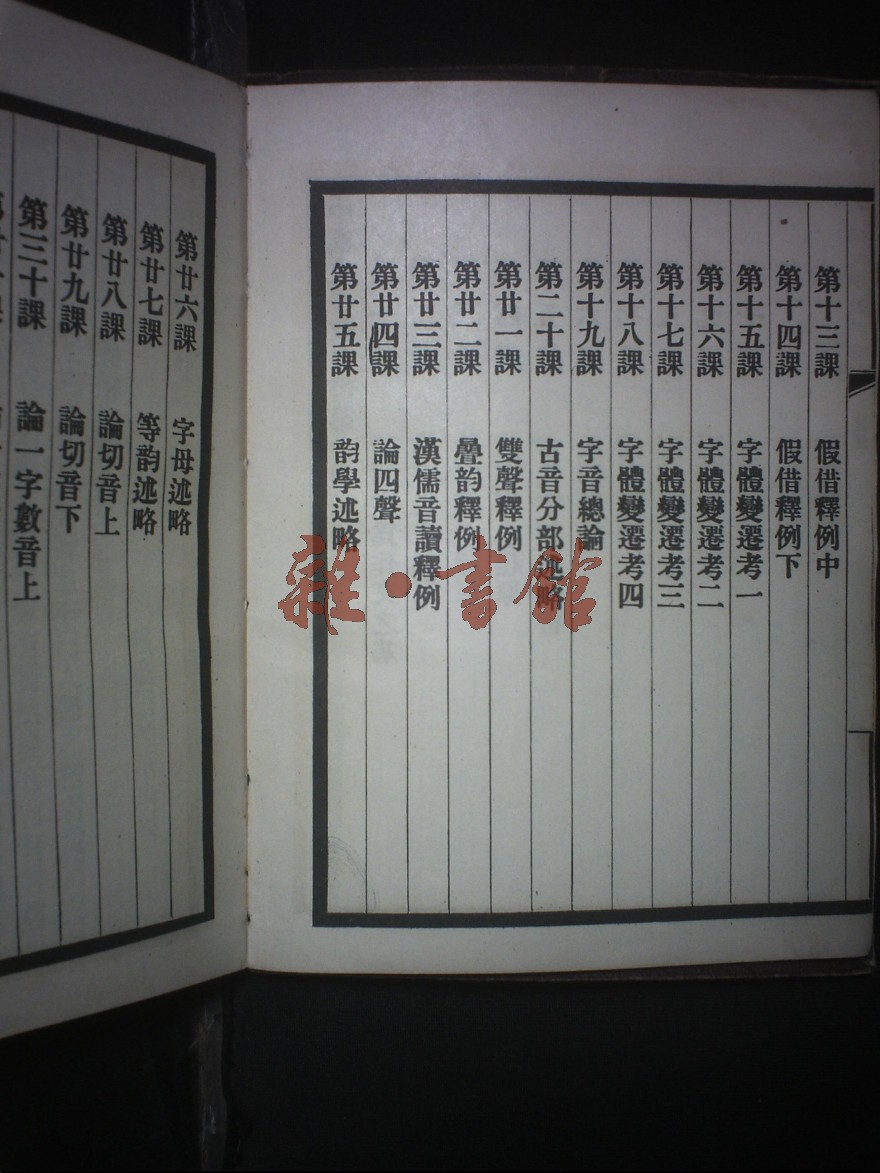 第十三課 假借釋例中
第十四課 假借釋例下
第十五課 字體變遷考一
第十六課 字體變遷考二
第十七課 字體變遷考三
第十八課 字體變遷考四
第十九課 字音總論
第二十課 古音分部述略
第廿一課 雙聲釋例
第廿二課 疊韵釋例
第廿三課 漢儒音讀釋例
第廿四課 論四聲
第廿五課 韵學述略
第廿六課 字母述略
第廿七課 等韵述略
第廿八課 論切音上
第廿九課 論切音下
第三十課 論一字數音上
雜·書館